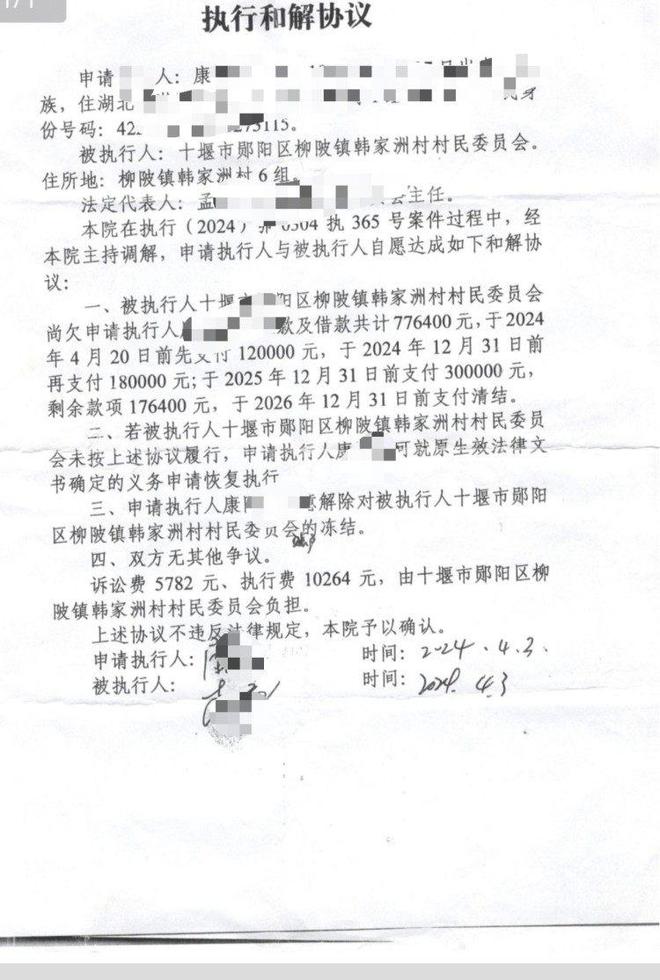 1/1
执行和解协议
申请 人：康
族，住湖北
份号码：42 273115。
被执行人：十堰市郧阳区柳陂镇韩家洲村村民委员会。
住所地：柳陂镇韩家洲村6组。
法定代表人：孟 主任。
本院在执行（2024） 0304执365号案件过程中，经
本院主持调解，申请执行人与被执行人自愿达成如下和解协
议：
一、被执行人十堰 阳区柳陂镇韩家洲村村民委员会
尚欠申请执行人 款及借款共计776400元，于2024
年4月20日前先支付120000元，于2024年12月31日前
再支付180000元；于2025年12月31日前支付300000元，
剩余款项176400元，于2026年12月31日前支付清结。
二、若被执行人十堰市郧阳区柳陂镇韩家洲村村民委员
会未按上述协议履行，申请执行人康 可就原生效法律文
书确定的义务申请恢复执行
三、申请执行人康 意解除对被执行人十堰市郧阳
区柳陂镇韩家洲村村民委员会的冻结。
四、双方无其他争议。
诉讼费5782元、执行费10264元，由十堰市郧阳区柳
陂镇韩家洲村村民委员会负担。
上述协议不违反法律规定，本院予以确认。
申请执行人： 时间：2024.4.3.
被执行人： 时间：2024.4.3